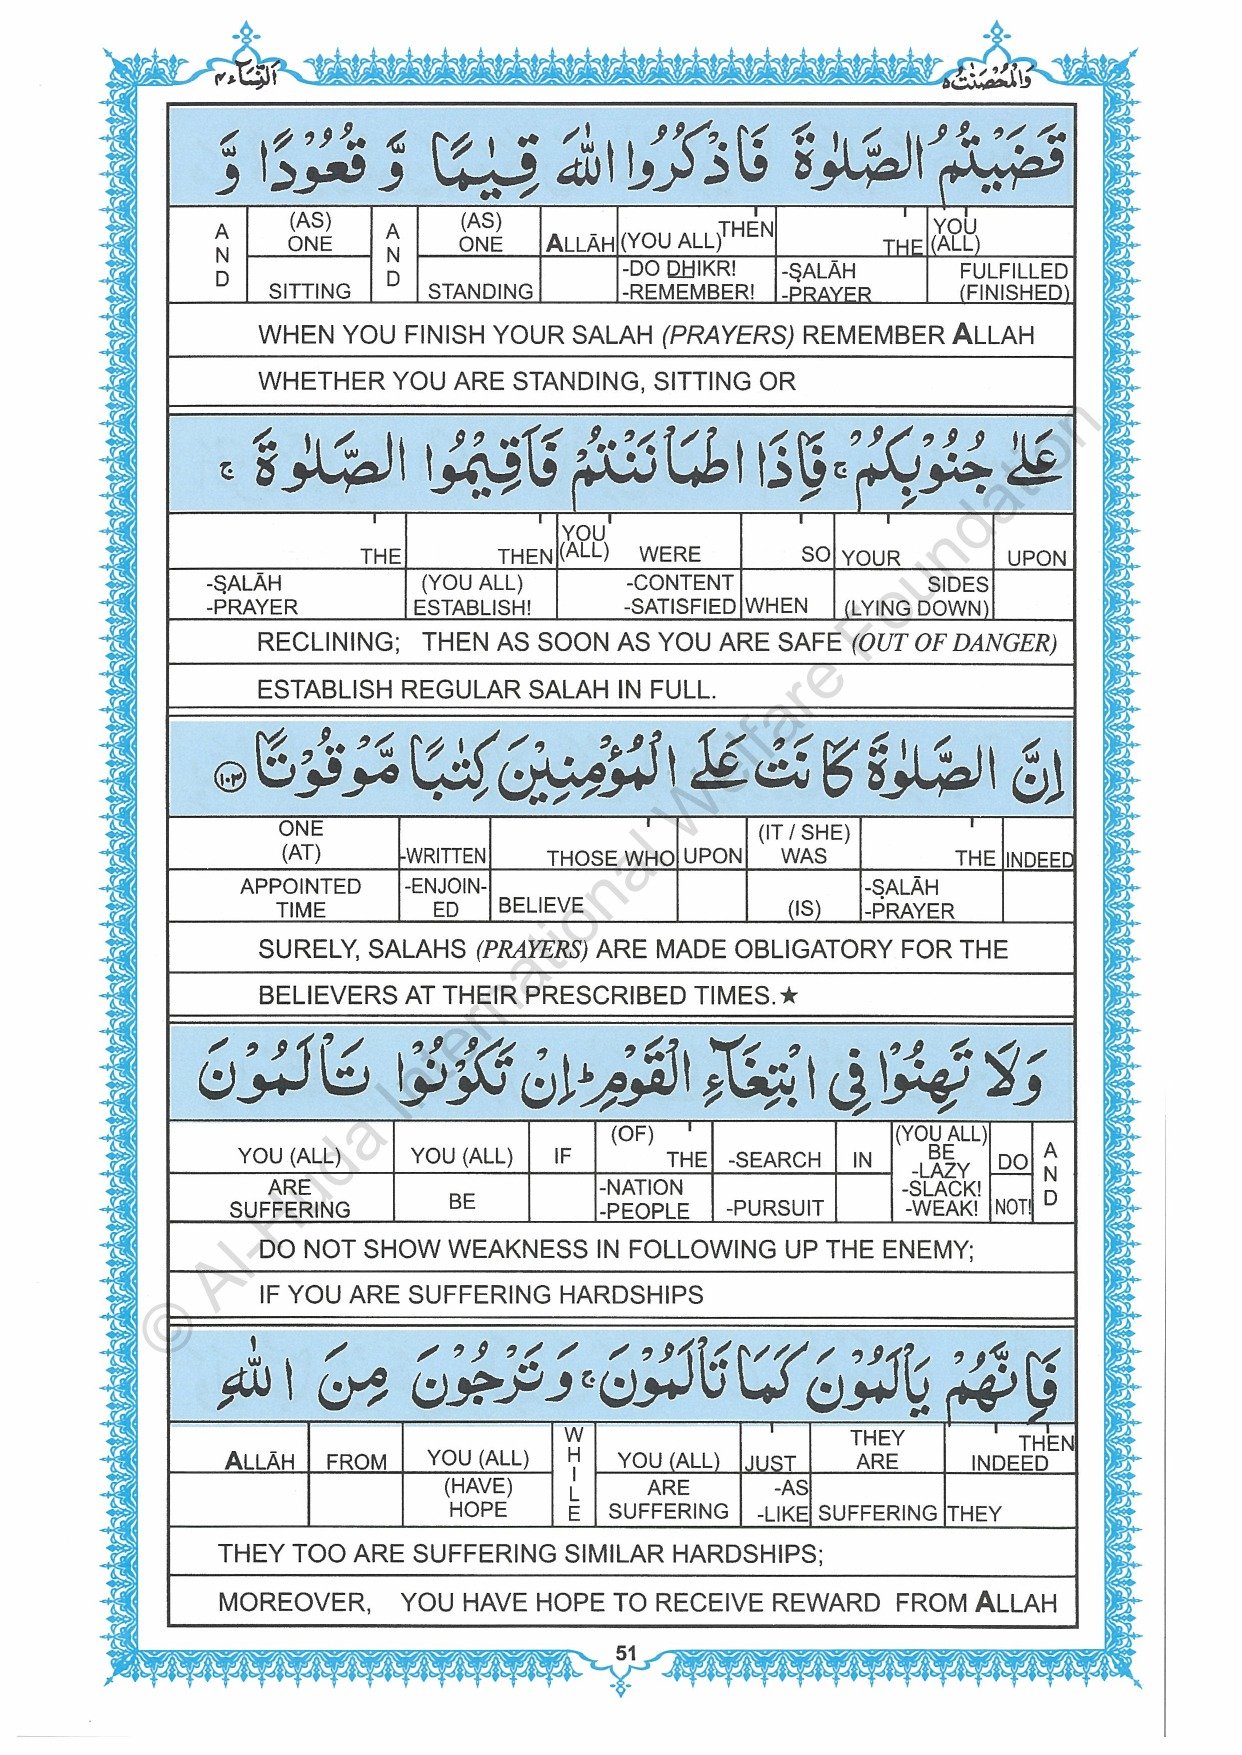 اَلنِّسَآء ٤
وَالْمُحْصَنٰتُ ٥
قَضَيْتُمُ الصَّلٰوةَ فَاذْكُرُوا اللّٰهَ قِيٰمًا وَّ قُعُوْدًا وَّ
AND (AS) ONE AND (AS) ONE ALLĀH (YOU ALL) THEN THE YOU (ALL)
SITTING STANDING -DO DHIKR! -REMEMBER! -ṢALĀH -PRAYER FULFILLED (FINISHED)
WHEN YOU FINISH YOUR SALAH (PRAYERS) REMEMBER ALLAH
WHETHER YOU ARE STANDING, SITTING OR
عَلٰى جُنُوْبِكُمْ ۚ فَاِذَا اطْمَاْنَنْتُمْ فَاَقِيْمُوا الصَّلٰوةَ ۚ
THE THEN YOU (ALL) WERE SO YOUR UPON
-ṢALĀH -PRAYER (YOU ALL) ESTABLISH! -CONTENT -SATISFIED WHEN SIDES (LYING DOWN)
RECLINING; THEN AS SOON AS YOU ARE SAFE (OUT OF DANGER)
ESTABLISH REGULAR SALAH IN FULL.
اِنَّ الصَّلٰوةَ كَانَتْ عَلَى الْمُؤْمِنِيْنَ كِتٰبًا مَّوْقُوْتًا ١٠٣
ONE (AT) -WRITTEN THOSE WHO UPON (IT / SHE) WAS THE INDEED
APPOINTED TIME -ENJOIN-ED BELIEVE (IS) -ṢALĀH -PRAYER
SURELY, SALAHS (PRAYERS) ARE MADE OBLIGATORY FOR THE
BELIEVERS AT THEIR PRESCRIBED TIMES.★
وَلَا تَهِنُوْا فِى ابْتِغَآءِ الْقَوْمِ ؕ اِنْ تَكُوْنُوْا تَاْلَمُوْنَ
YOU (ALL) YOU (ALL) IF (OF) THE -SEARCH IN (YOU ALL) BE -LAZY DO AND
ARE SUFFERING BE -NATION -PEOPLE -PURSUIT -SLACK! -WEAK! NOT!
DO NOT SHOW WEAKNESS IN FOLLOWING UP THE ENEMY;
IF YOU ARE SUFFERING HARDSHIPS
فَاِنَّهُمْ يَاْلَمُوْنَ كَمَا تَاْلَمُوْنَ ۚ وَتَرْجُوْنَ مِنَ اللّٰهِ
ALLĀH FROM YOU (ALL) WHILE YOU (ALL) JUST THEY ARE THEN INDEED
(HAVE) HOPE ARE SUFFERING -AS -LIKE SUFFERING THEY
THEY TOO ARE SUFFERING SIMILAR HARDSHIPS;
MOREOVER, YOU HAVE HOPE TO RECEIVE REWARD FROM ALLAH
51
© Al-Huda International Welfare Foundation